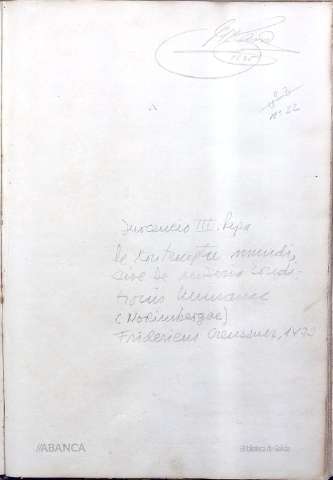 nº 22
Inocencio III, Papa
De contemptu mundi,
sive de miseria condi-
tionis humanae
(Norimbergae)
Fridericus Creussner, 1477
//ABANCA
Biblioteca de Galicia